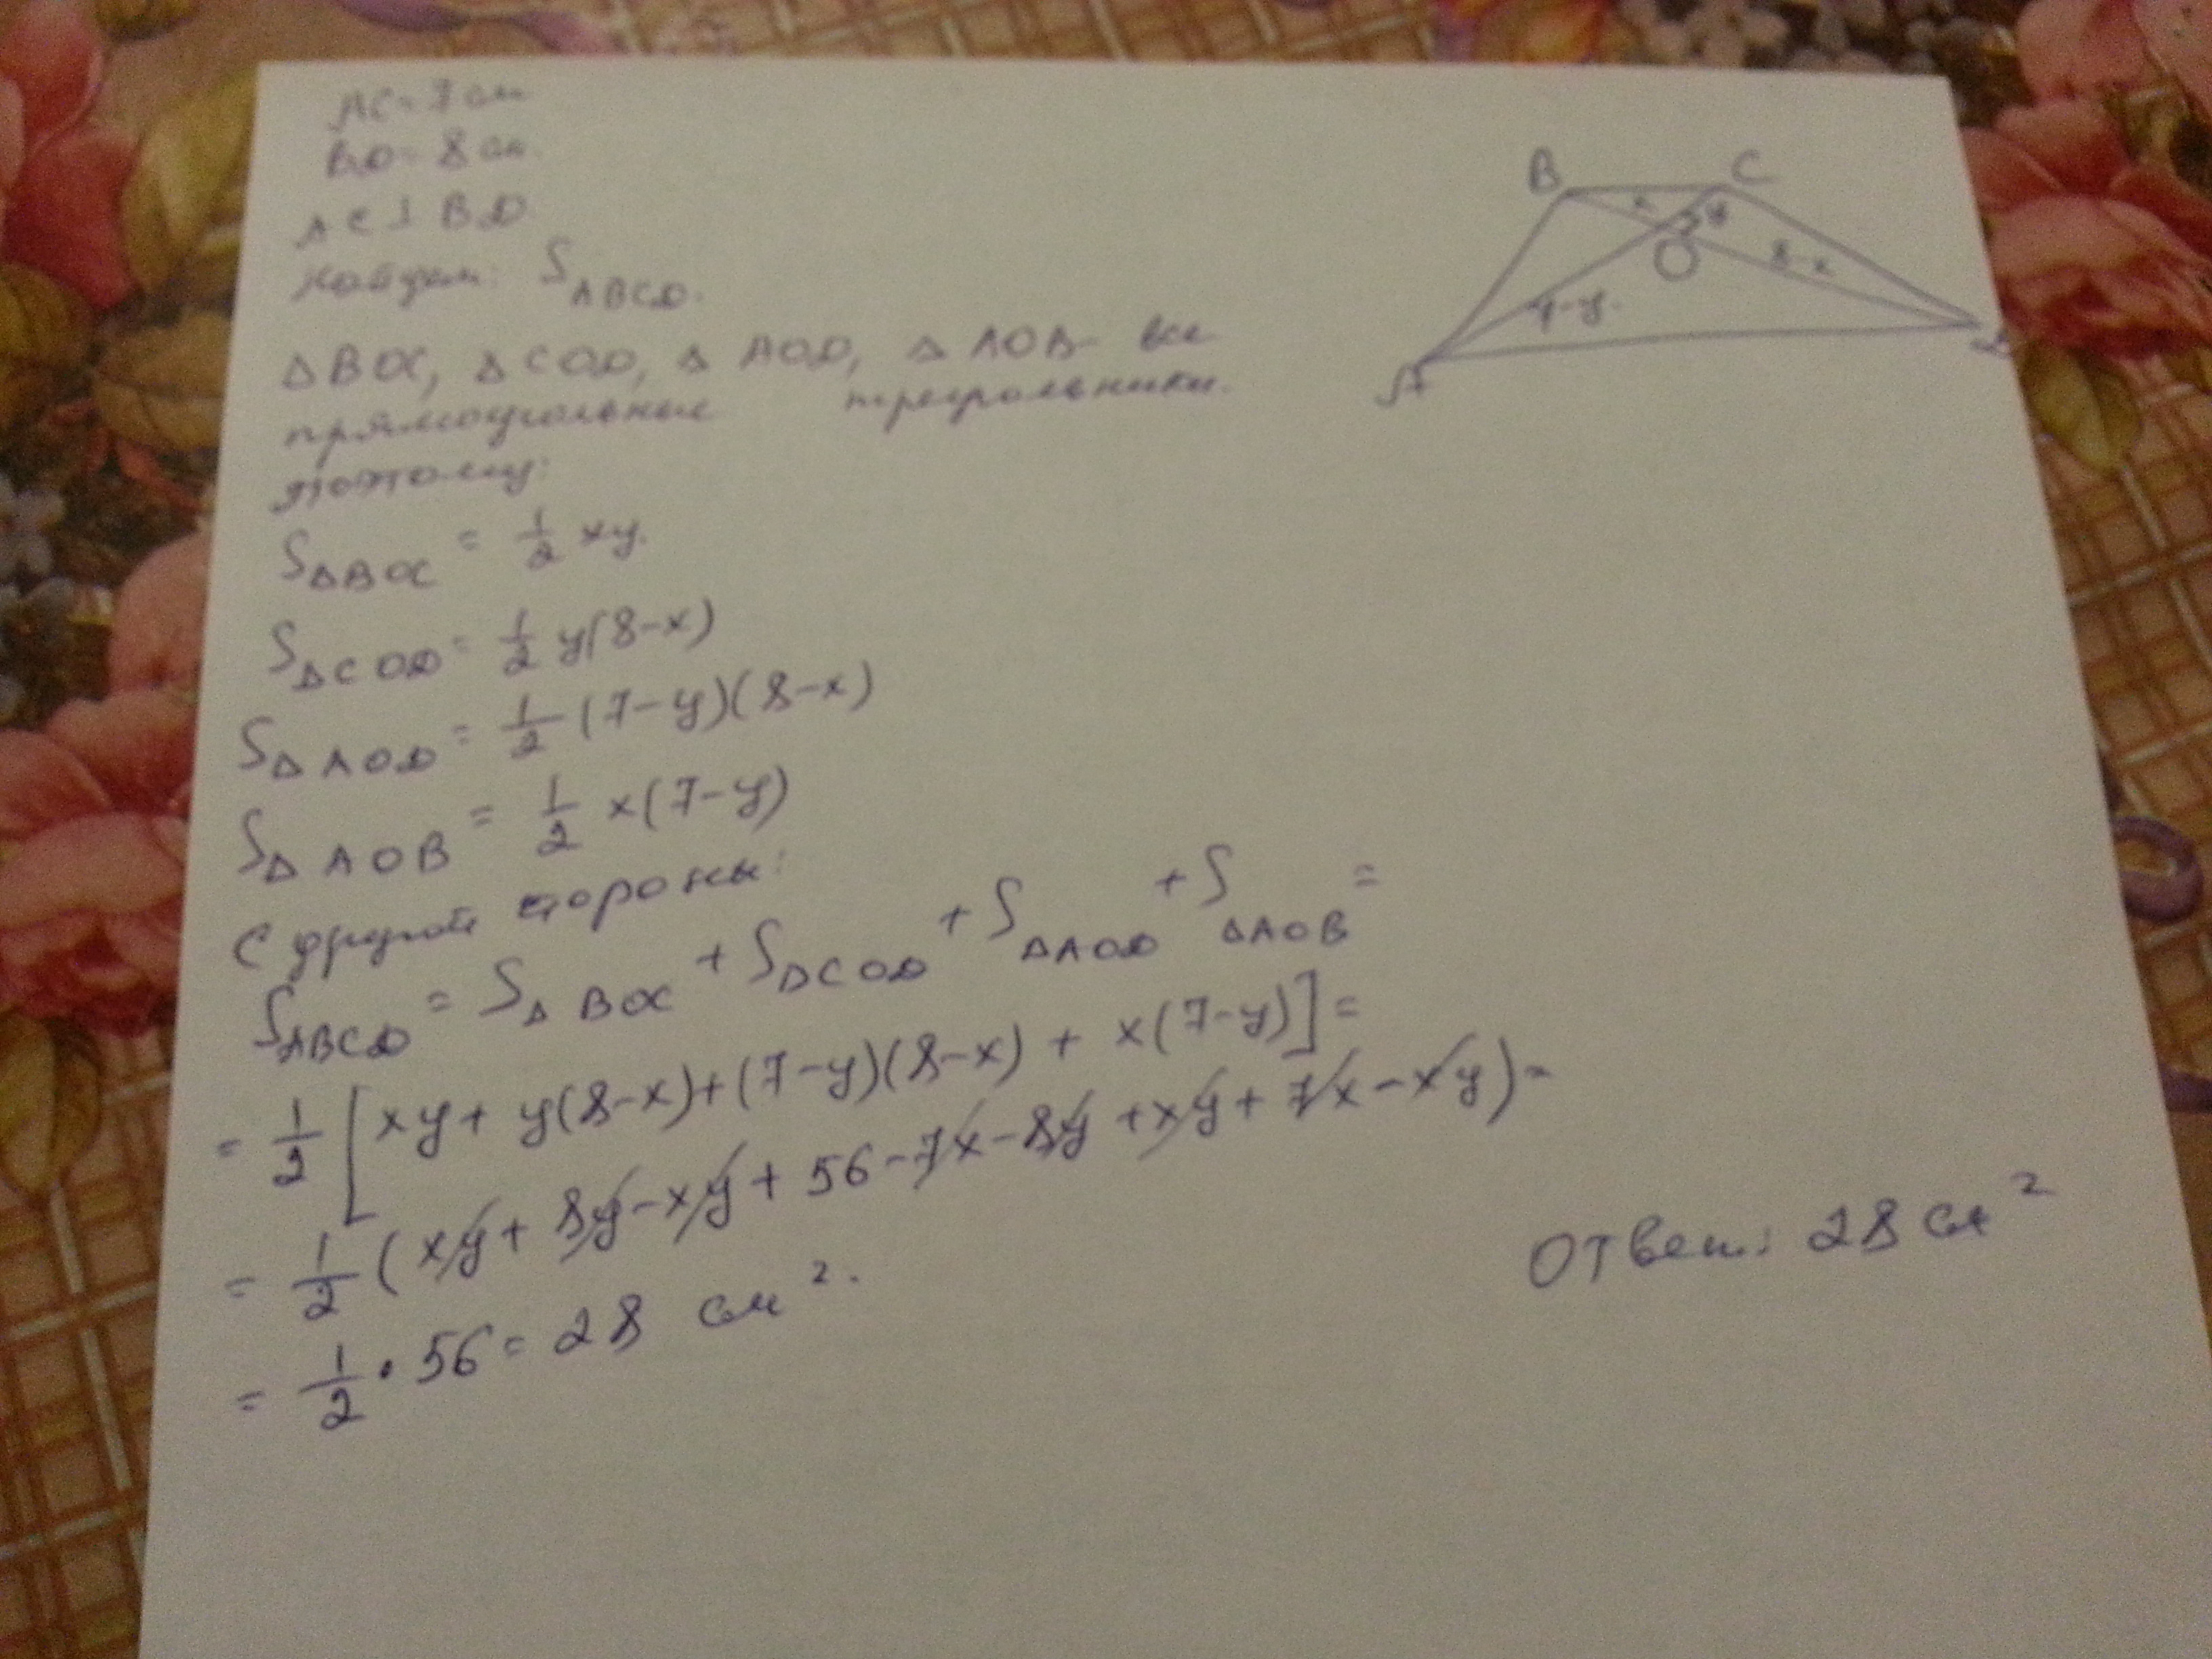 AC = 7 см
BD = 8 см.
AC ⊥ BD
Найдем: S ABCD.
B
C
x
y
O
8-x
7-y.
A
D
Δ BOC, Δ COD, Δ AOD, Δ AOB - все
прямоугольные треугольники.
поэтому:
S ΔBOC = 1/2 xy.
S ΔCOD = 1/2 y(8-x)
S ΔAOD = 1/2 (7-y)(8-x)
S ΔAOB = 1/2 x(7-y)
С другой стороны:
S ABCD = S ΔBOC + S ΔCOD + S ΔAOD + S ΔAOB =
= 1/2 [xy + y(8-x) + (7-y)(8-x) + x(7-y)] =
= 1/2 (xy + 8y - xy + 56 - 7x - 8y + xy + 7x - xy) =
= 1/2 · 56 = 28 см².
Ответ: 28 см²